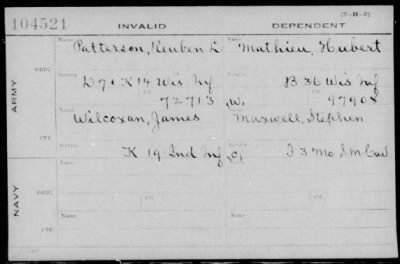 (3-H-8)
104521 INVALID DEPENDENT
Patterson, Reuben L Mathieu, Hubert
D & K 14 Wis Inf B 36 Wis Inf
ORIG.
72713 W. 97908
ARMY
Wilcoxan, James Maxwell, Stephen
K 19 Ind Inf C. I 3 Mo S M Cav
CTF.
ORIG.
NAVY
CTF.